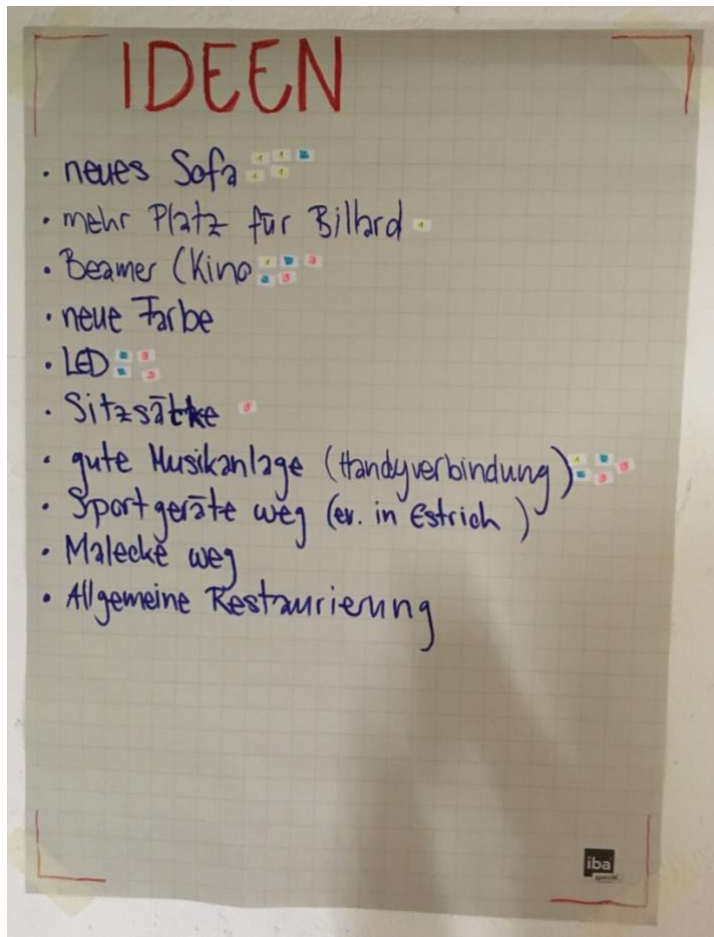 IDEEN
· neues Sofa
· mehr Platz für Billard
· Beamer (Kino
· neue Farbe
· LED
· Sitzsäcke
· gute Musikanlage (Handyverbindung)
· Sportgeräte weg (ev. in Estrich)
· Malecke weg
· Allgemeine Restaurierung
iba